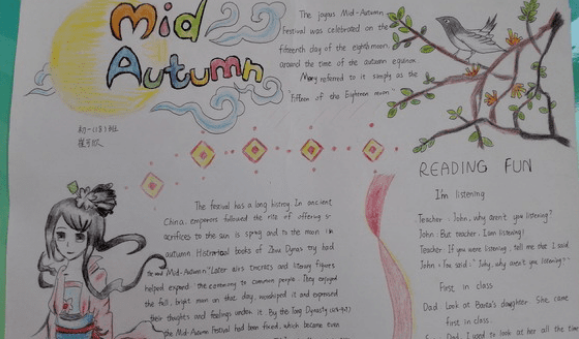 Mid
Autumn
The joyous Mid-Autumn
Festival was celebrated on the
fifteenth day of the eighth moon,
around the time of the autumn equinox.
Many referred to it simply as the
"Fifteen of the Eighteen moon"
初一(18)班
The festival has a long history. In ancient
China, emperors followed the rite of offering
sacrifices to the sun is spring and to the moon in
autumn. Historical books of Zhou Dynas try had
Mid-Autumn" Later
and literary figures
helped expand the ceremony to common people. They enjoyed
the full, bright moon on that day, worshiped it and expressed
their thoughts and feelings under it. By the Tang Dynasty
the Mid-Autumn Festival had been fixed, which became even
READING FUN
I'm listening
Teacher: John, why aren't you listening?
John: But teacher, I am listening!
Teacher: If you were listening, tell me the I said
John: You said: "John, why aren't you listening?"
First in class
Dad: Look at daughter. She came
first in class.
I used to look at her all the time